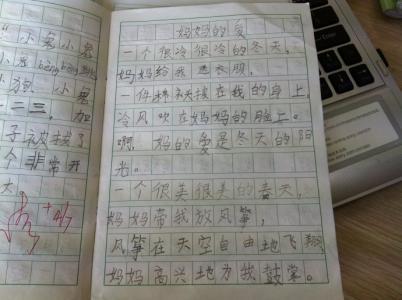 小狗
二二三，加
个非常开
大
妈妈的爱
一个很冷很冷的冬天，
妈妈给我送衣服，
一件在我的身上，
冷风吹在妈妈的脸上。
啊，妈的爱是冬天的阳
光。
一个很美很美的春天，
妈妈带我放风筝，
风筝在天空自由地飞翔
妈妈高兴地为我鼓掌。